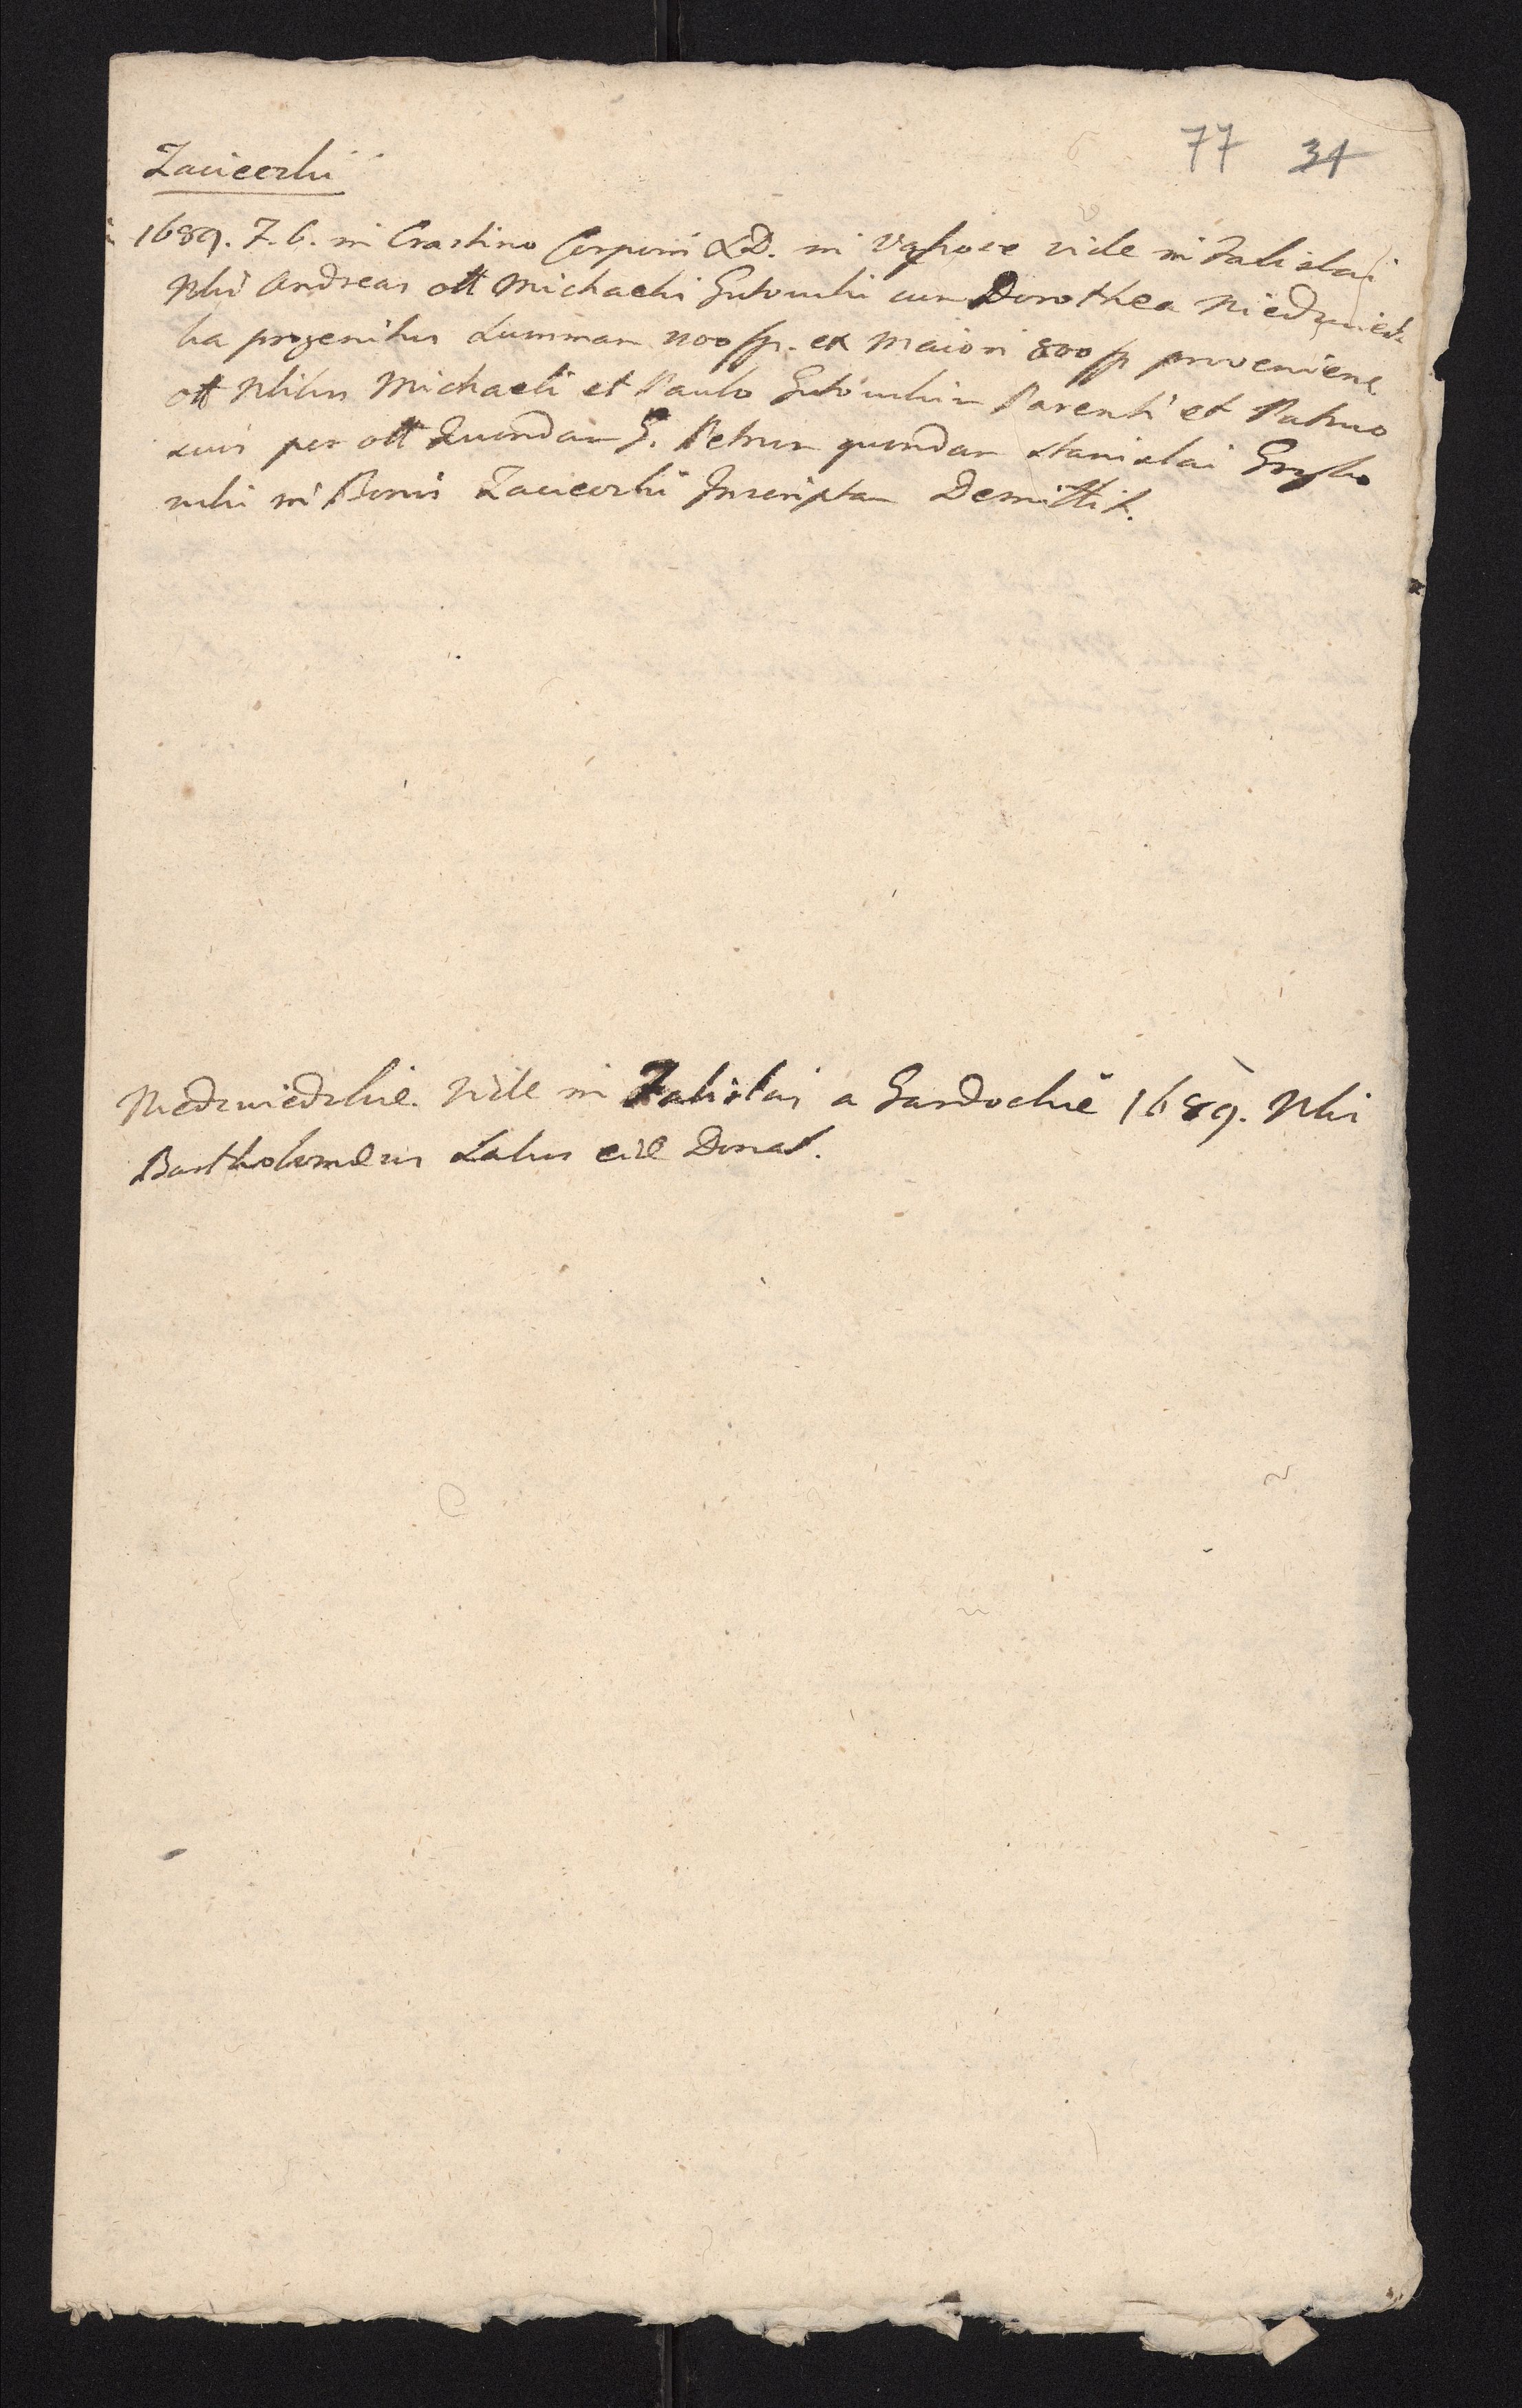 77 34
Zacieczki
1689. F. 6. in Crastino Corporis XD. in Vąsosz vide in Zalislai
Nblis Andreas olt Michaelis Gutowski cum Dorothea Niedzwiedz
ka progenitus summam 1100 fp. ex maiori 800 fp provenienę
olt Nblibus Michaeli et Paulo Gutowskim Parenti et Patruo
suis per olt quondam G. Petrum quondam Stanislai Grzybo
wski in Bonis Zacieczki Inscriptam Demittit.
Niedzwiedzkie. Vide in Zalislai a Gardockie 1689. Nblis
Bartholomeus Donat.